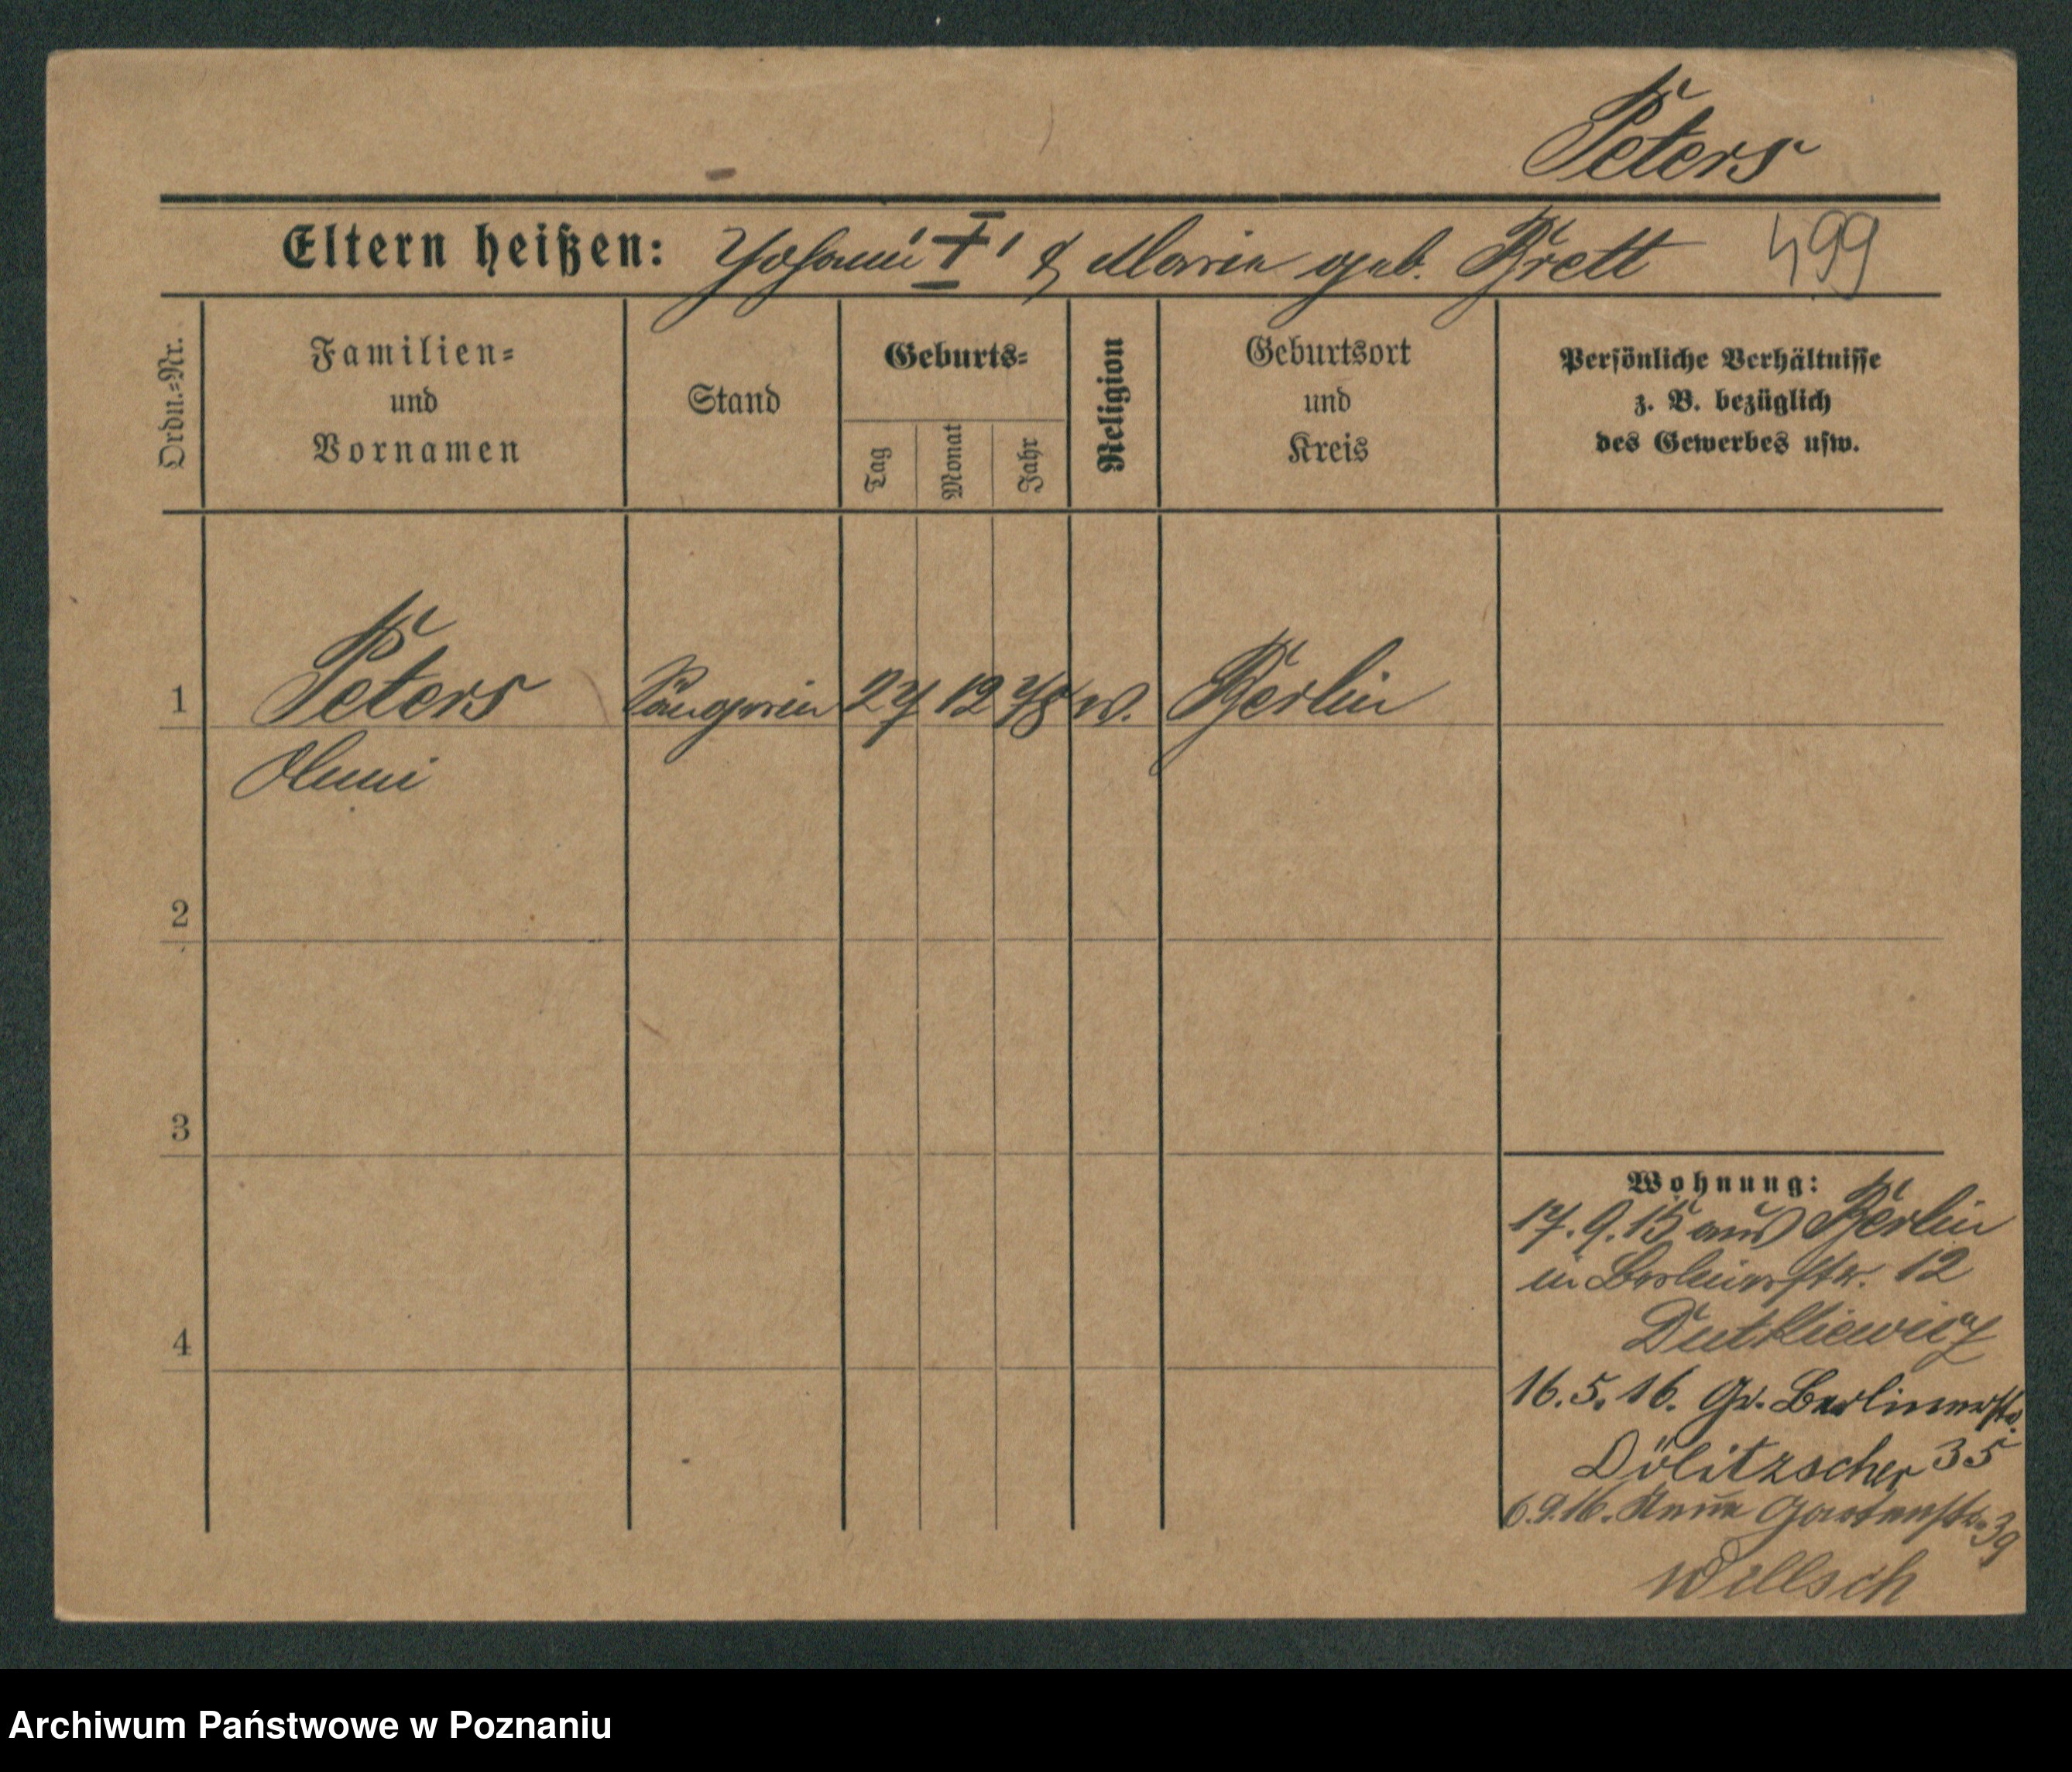 Peters
Eltern heißen: Johann † & Marie geb. Brett 499
Ordn.=Nr.
Familien=
und
Vornamen
Stand
Geburts=
Tag
Monat
Jahr
Religion
Geburtsort
und
Kreis
Persönliche Verhältnisse
z. B. bezüglich
des Gewerbes usw.
1 Peters Sängerin 27 12 78 Berlin
2
3
4
Wohnung:
17.9.15 aus Berlin
in Berlinerstr. 12
Dutkiewicz
16.5.16. Gr. Berlinerstr.
Dölitzscher 35
6.9.16. Neue Gartenstr. 39
Willsch
Archiwum Państwowe w Poznaniu